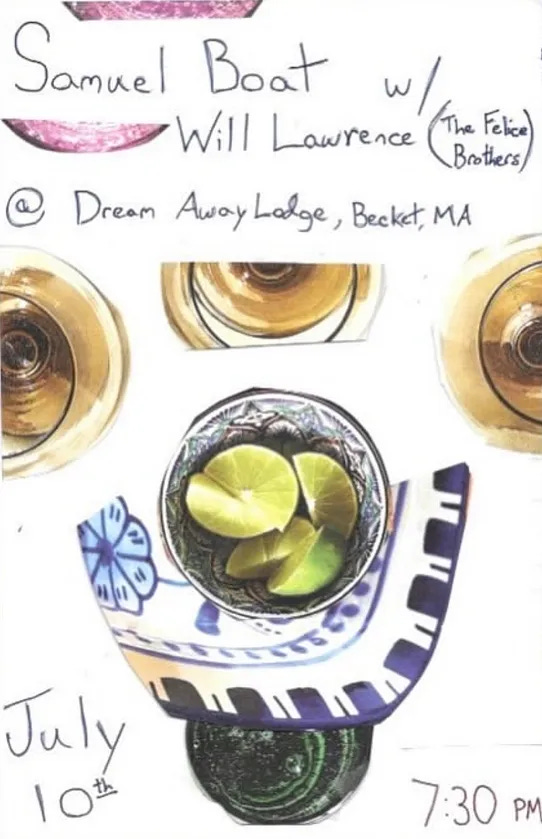 Samuel Boat w/
Will Lawrence (The Felice
Brothers)
@ Dream Away Lodge, Becket, MA
July
10th
7:30 PM